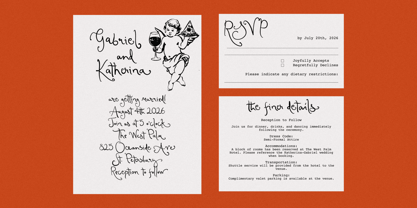 Gabriel
and
Katherina
are getting married!
August 4th 2026
Join us at 5 o'clock
The West Pola
325 Oceanside Ave
St Petersburg
Reception to follow
RSVP
by July 20th, 2026
Joyfully Accepts
Regretfully Declines
Please indicate any dietary restrictions:
the finer details
Reception to Follow
Join us for dinner, drinks, and dancing immediately
following the ceremony.
Dress Code:
Semi-Formal Attire
Accommodations:
A block of rooms has been reserved at The West Pola
Hotel. Please reference the Katherina-Gabriel wedding
when booking.
Transportation:
Shuttle service will be provided from the hotel to the
venue.
Parking:
Complimentary valet parking is available at the venue.